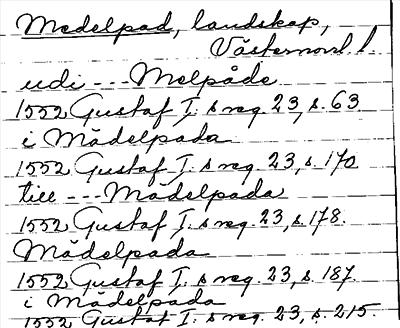 Medelpad, landskap,
Västernorrl. l.
udi --- Melpåde
1552 Gustaf I:s reg. 23, s. 63
i Mädelpada
1552 Gustaf I:s reg. 23, s. 170
till --- Mädelpada
1552 Gustaf I:s reg. 23, s. 178.
Mädelpada
1552 Gustaf I:s reg. 23, s. 187.
i Mädelpada
1552 Gustaf I:s reg. 23, s. 215.